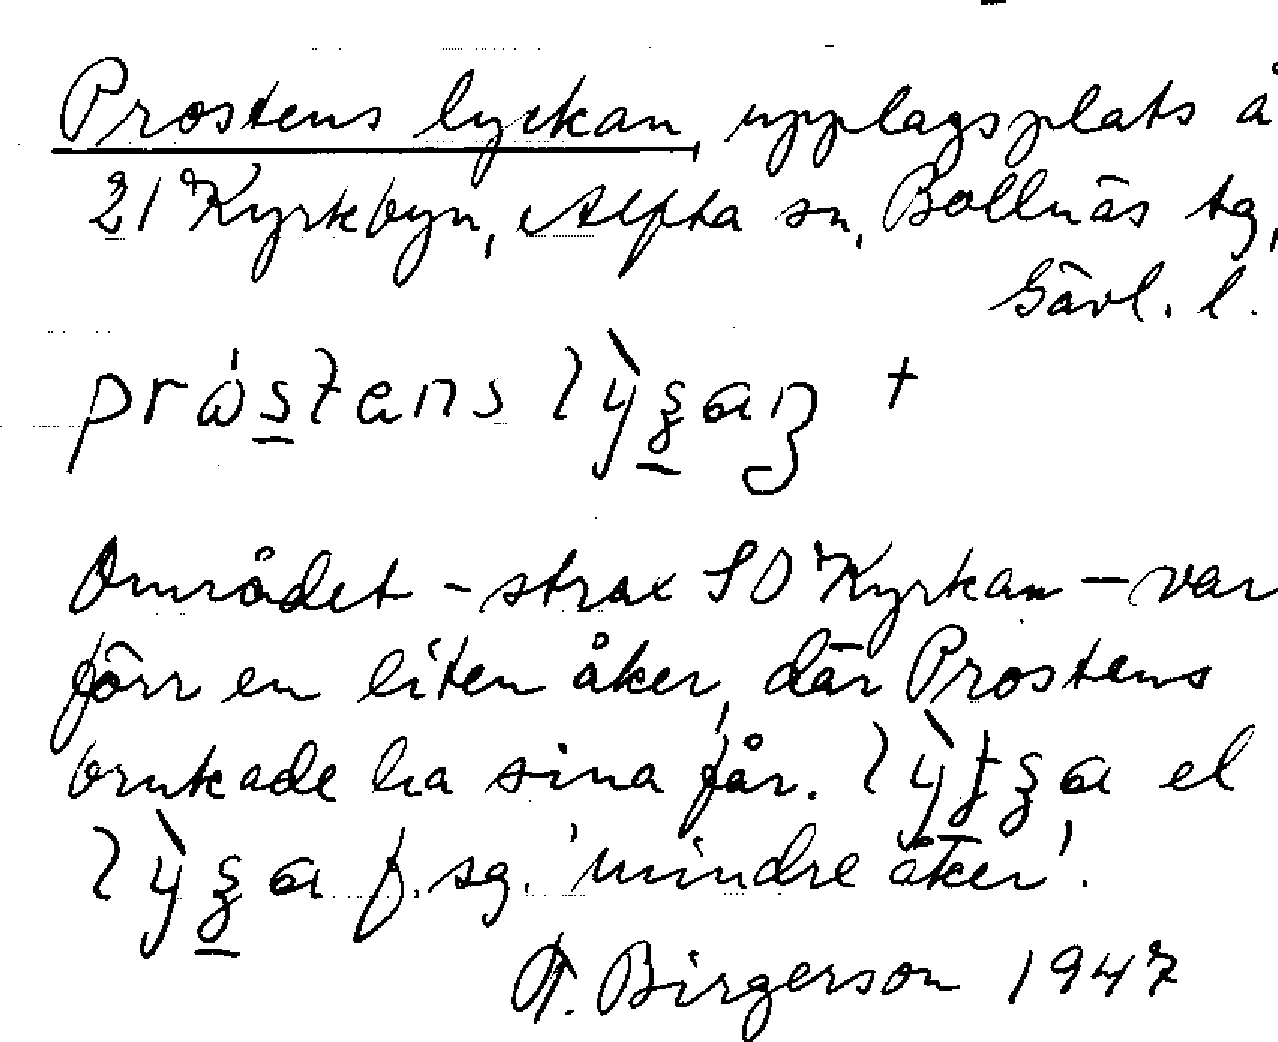 Prostens lyckan, upplagsplats å
21 Kyrkbyn, Alfta sn, Bollnäs tg,
Gävl. l.
prȧstens lỳʒan +
Området – strax SO Kyrkan – var
förr en liten åker, där Prostens
brukade ha sina får. lỳtʒa el
lỳʒa f. sg. 'mindre åker'.
A. Birgerson 1947